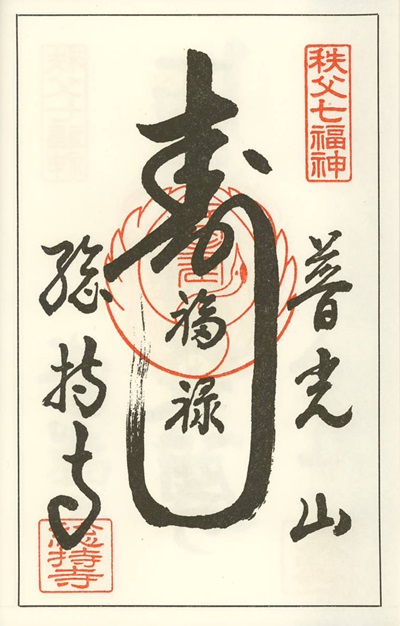 秩父七福神
普光山
寿
福禄
総持寺
総持寺